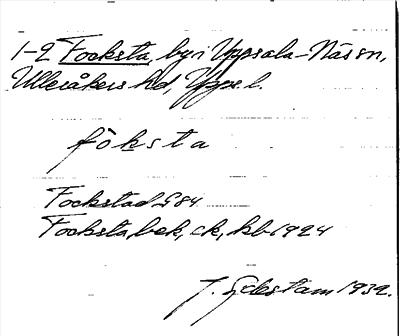 1-2 Focksta, by i Uppsala-Näs sn,
Ulleråkers hd, Upps. l.
fòksta
Fockstad G84
Focksta, bek, ck, kb 1924
J. Sahlström 1932.